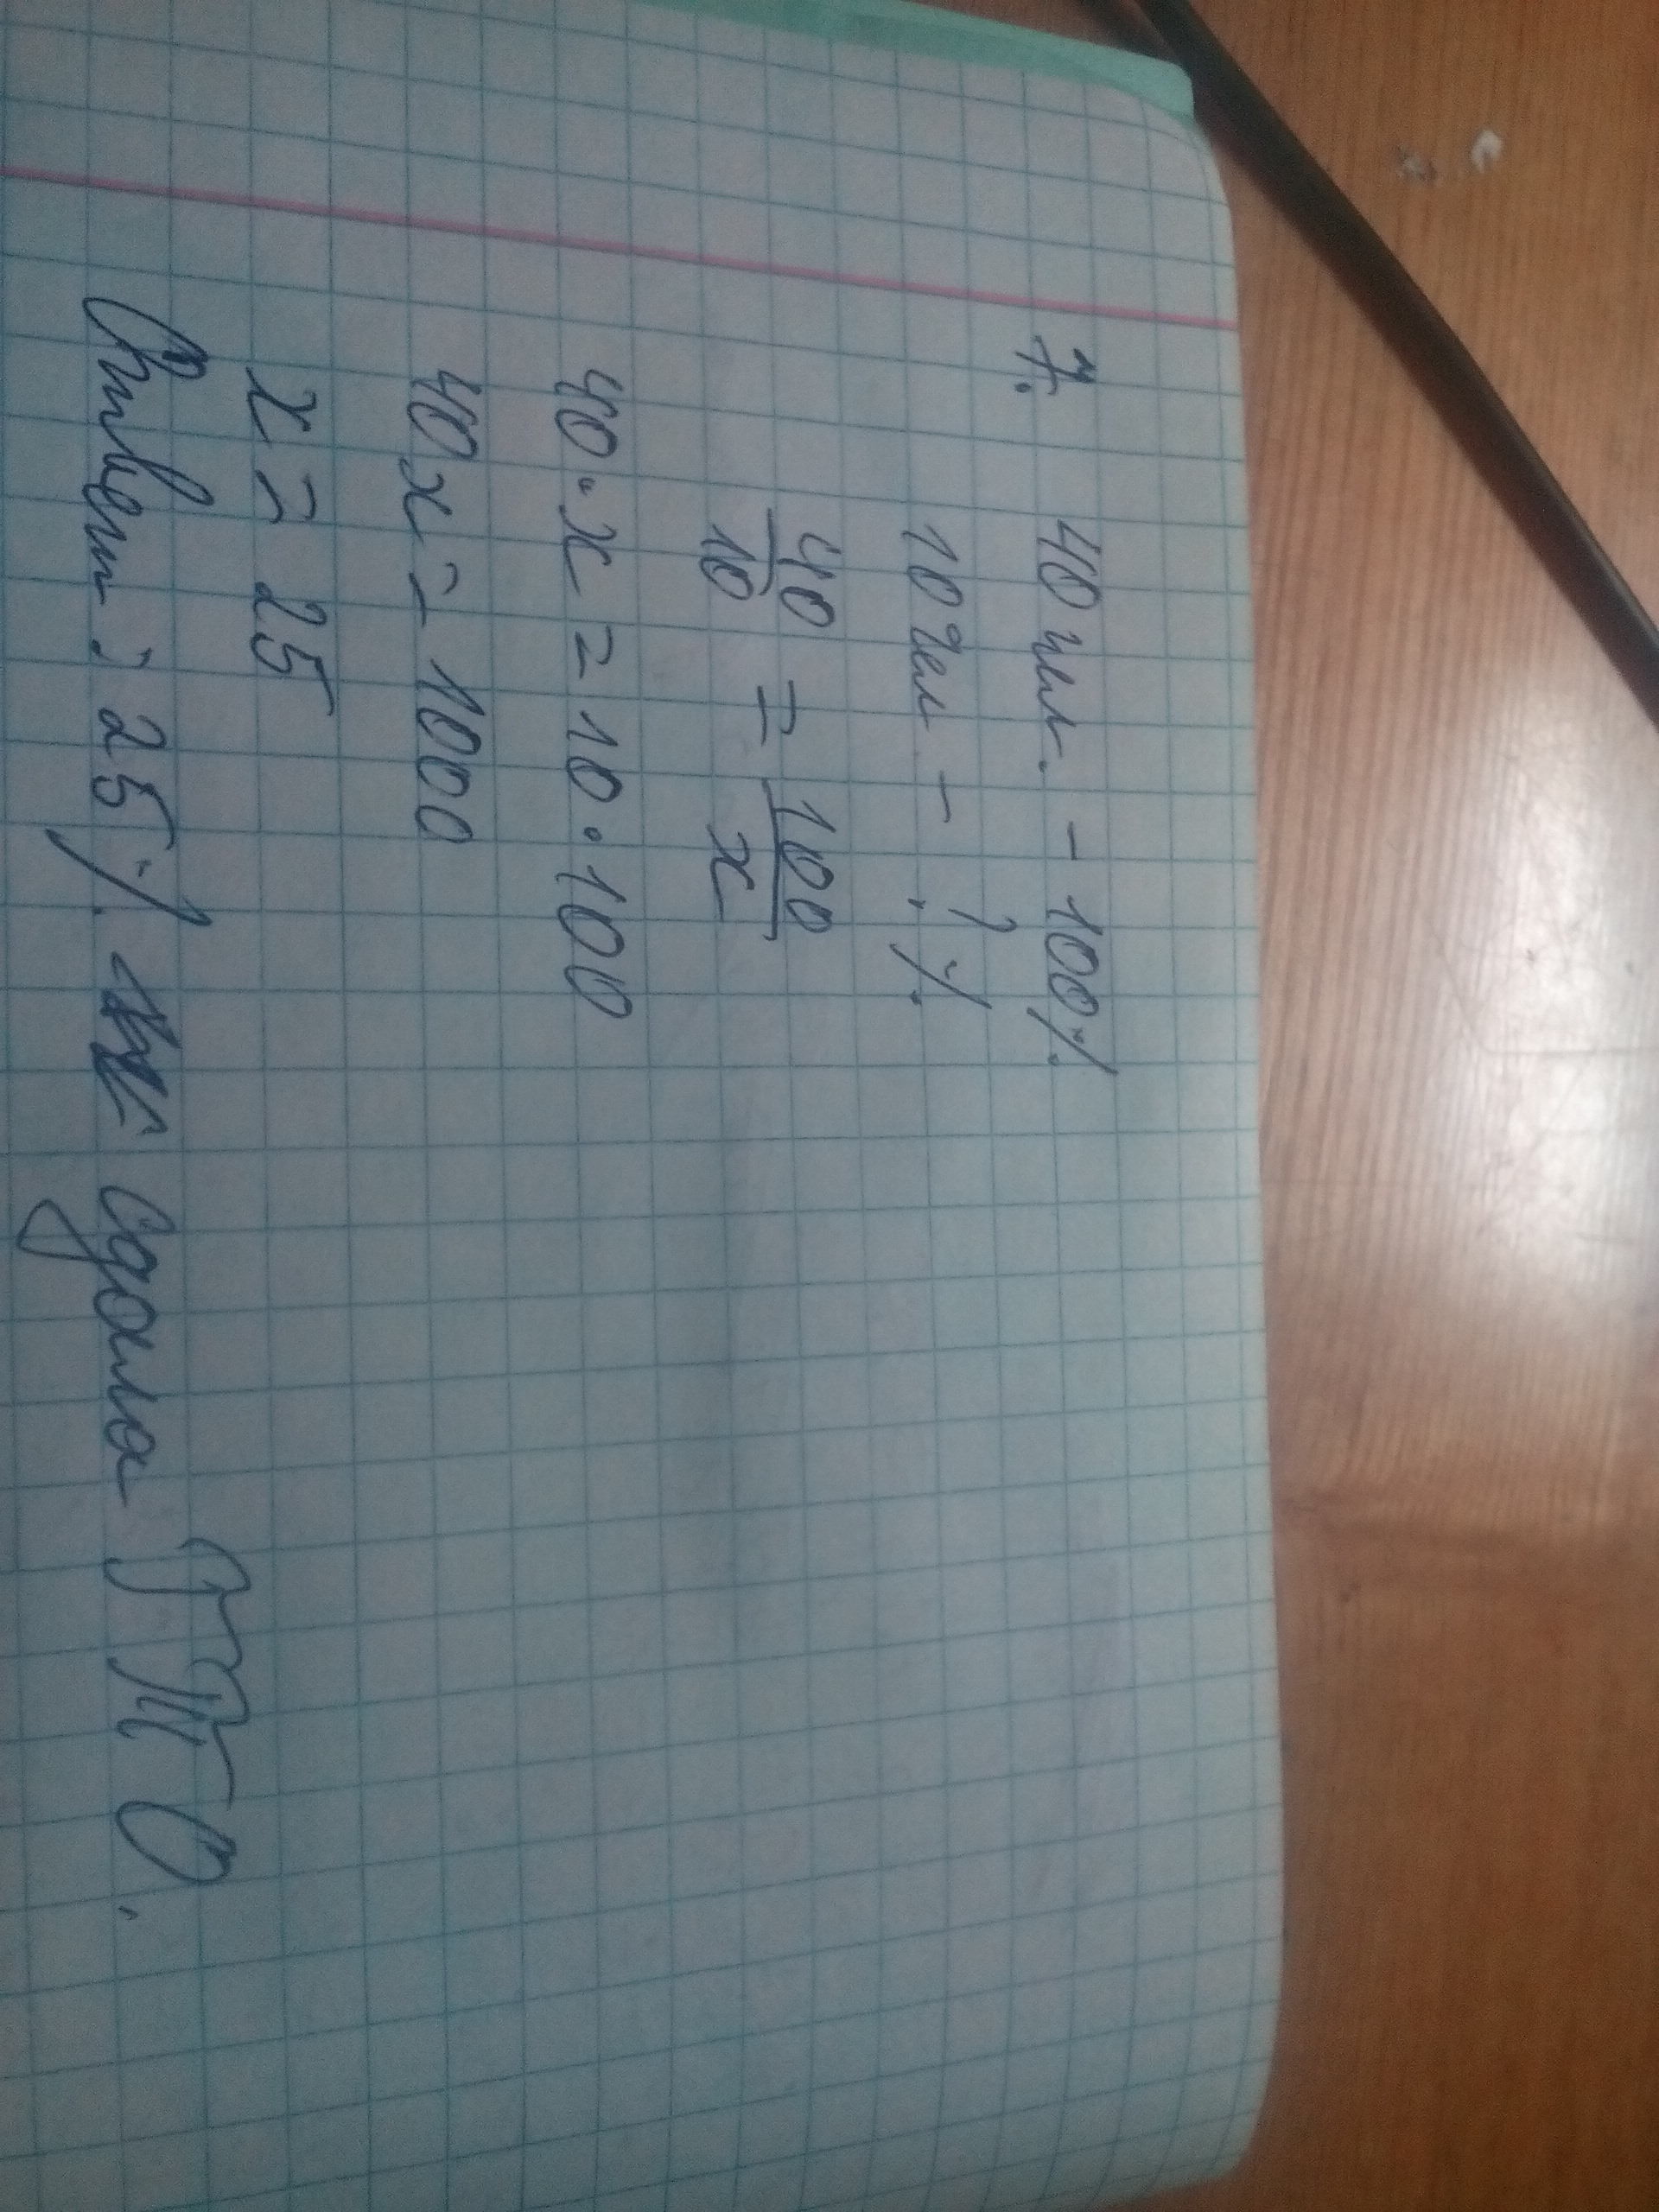 7. 40 чел. - 100%
10 чел - ? %
40/10 = 100/x
40 · x = 10 · 100
40x = 1000
x = 25
Ответ: 25% сдала ГТО.